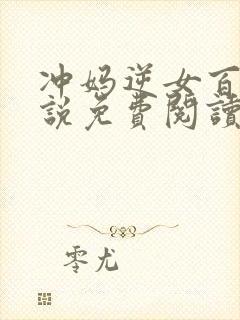 冲妈逆女百
说免費閱讀
零尤